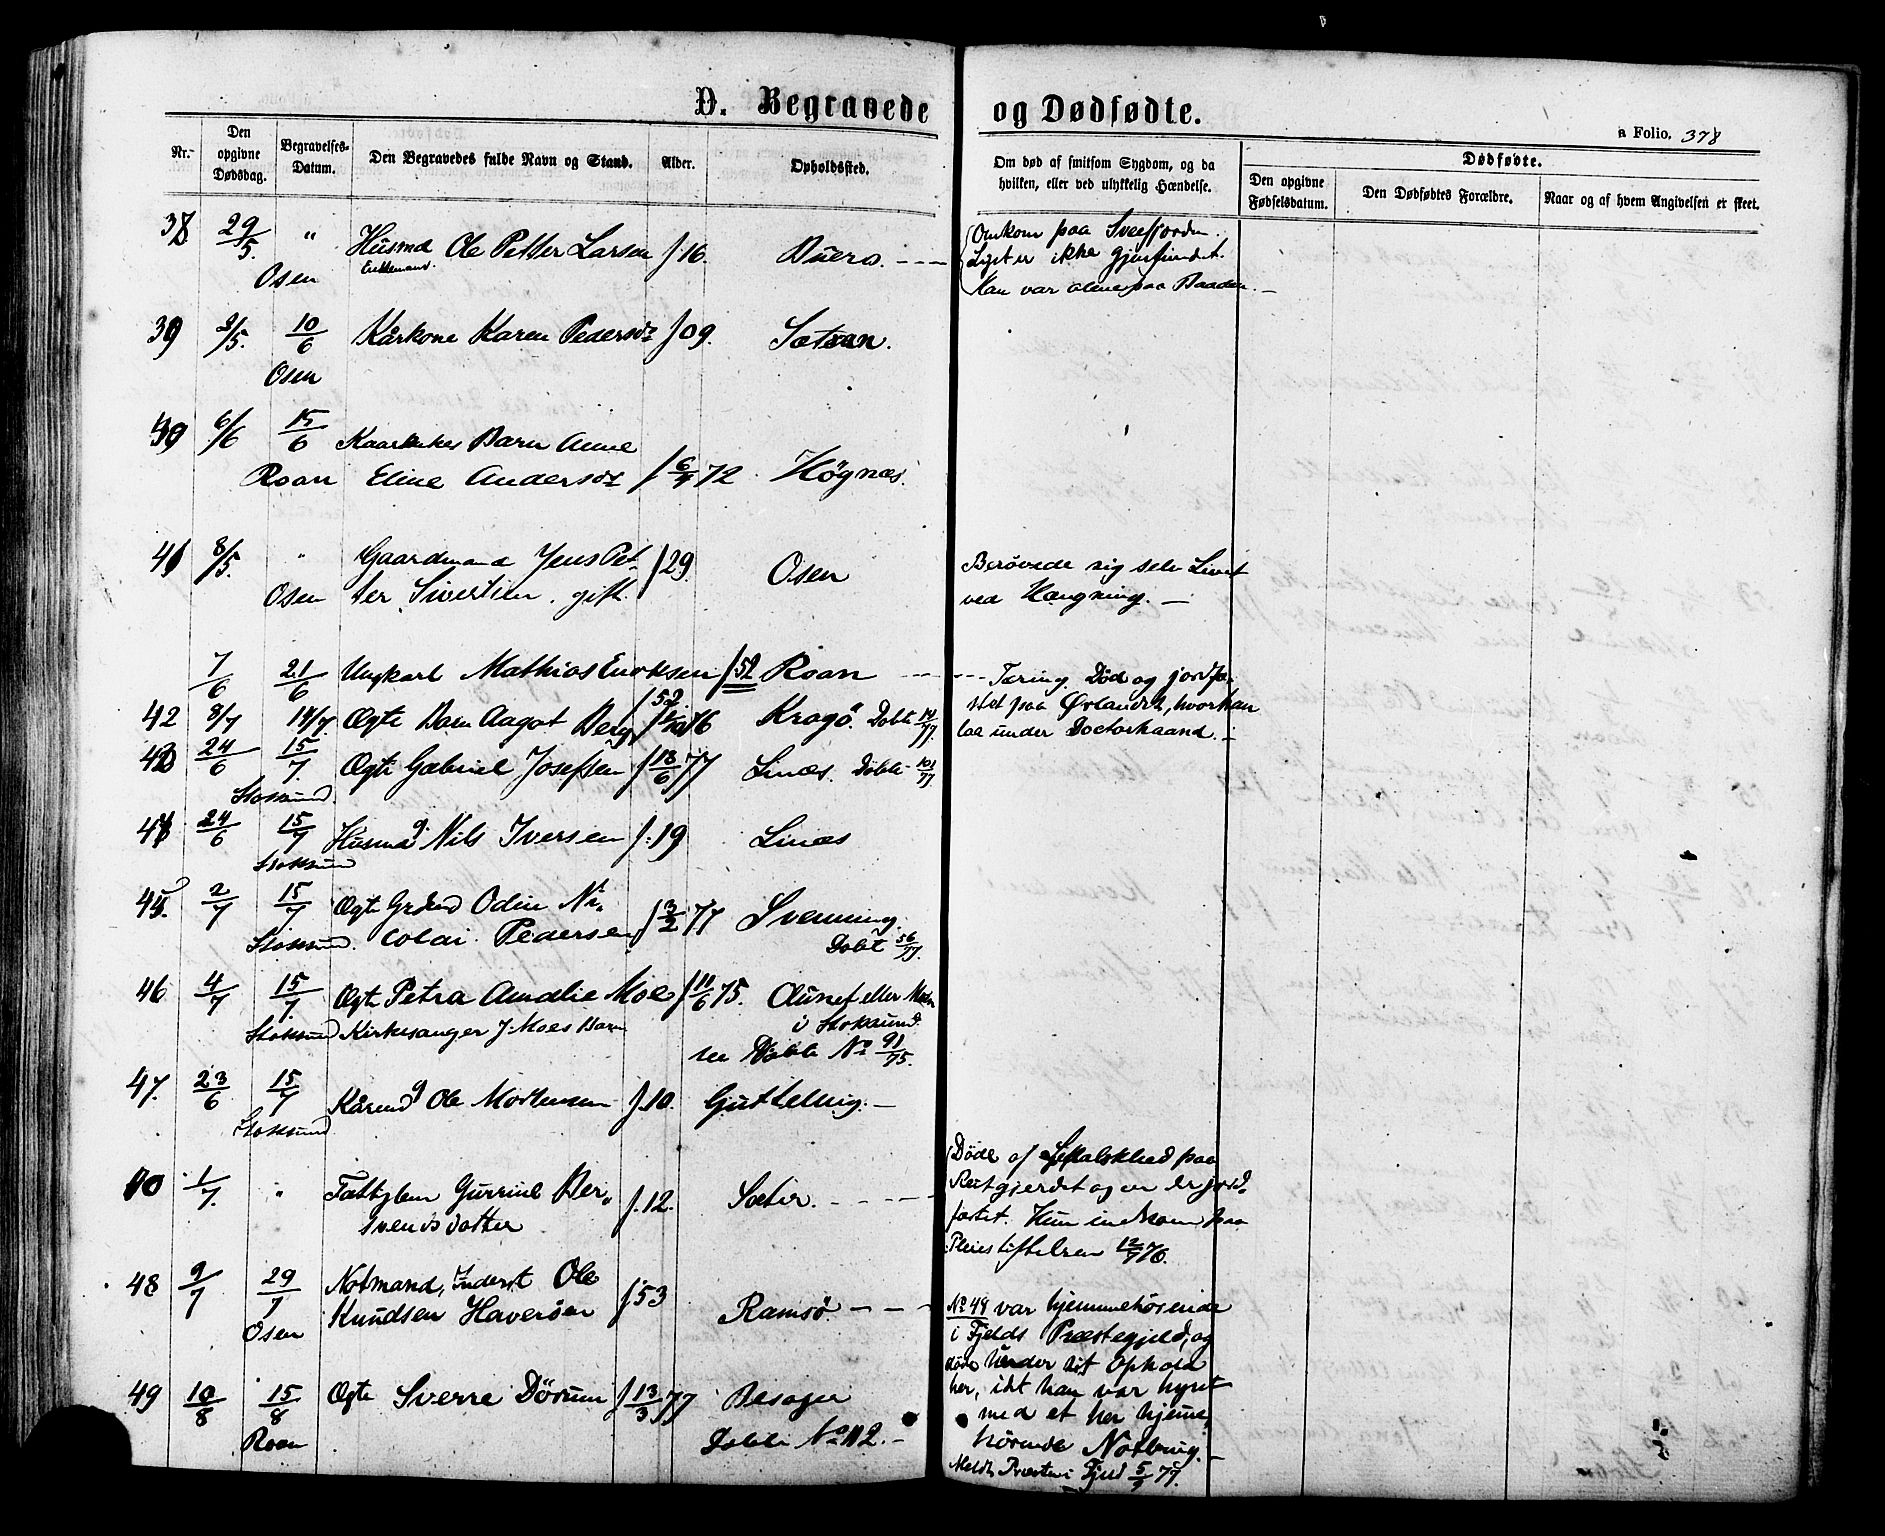 D. Begravede og Dødfødte.
a Folio. 378
Nr. Den opgivne Dødsdag. Begravelses-Datum. Den Begravedes fulde Navn og Stand. Alder. Opholdssted.
Om død af smitsom Sygdom, og da hvilken, eller ved ulykkelig Hændelse.
Dødfødte.
Den opgivne Fødselsdatum. Den Dødfødtes Forældre. Naar og af hvem Angivelsen er skeet.
38 29/5 " Husmd Ole Petter Larsen f. 16.
Osen Enkemand.
Omkom paa Svefjorden.
Liget er ikke gjenfundet.
Han var alene paa Baaden.
39 2/5. 10/6 Kårkone Karen Pedersdr f 09. Sætran.
Osen
6/6 15/6 Barn Anne
Roan Eline Andersdr f 6/4 72 Högnæs.
41 8/5. " Gaardmand Jens Pet-
Osen ter Sivertsen. gift f 29. Osen
Berövede sig selv Livet
ved Hængning. —
7/6 21/6 Ungkarl Mathias Enoksen f 52 Roan
Tæring. Död og jordfæ-
stet paa Ørlandet, hvor han
laa under Doctorhaand. —
42 8/7 14/7. Ægte Barn Aagot Berg 76 Kragö. Dobte 14/77.
43 24/6 15/7. Ægte Gabriel Josefsen f 13/6 77 Linæs. Döbte 101/77
Stoksund
24/6 15/7 Husmd g. Nils Iversen f. 19 Linæs
Stoksund
45. 2/7 15/7 Ægte Odin Ni-
Stoksund. colai Pedersen f 3/2 77 Svenning.
Döbte 56/77.
46 4/7 15/7. Ægte Petra Amalie Moe f 11/6 75. Aunet eller Moen
Stoksund Kirkesanger J. Moes Barn i Stoksund.
se Döbte No 91/75.
47. 23/6 15/7 Kårmd g Ole Mortensen f. 10. Guttelvig. —
Stoksund
1/7. " Fattiglem Gurrine Ber-
svendsdatter f. 12. Sæter.
Döde af paa
Reitgjerdet og er der jord-
fæstet. Hun indkom paa
Pleiestiftelsen 12/7 76.
48 9/7 29/7 Notmand, Inderst Ole
Osen Knudsen Haveröen f. 53 Ramsö.
No 48 var hjemmehörende
i Fjelds Præstegjeld, og
döde under sit Ophold
her, idet han var hyret
med et her hjemme-
hörende Notbrug. —
Meldt Præsten i Fjeld 5/9 77.
49 10/8 15/8 Ægte Sverre Dörum f 13/3 77 Besager
Roan Döbte No 112. —